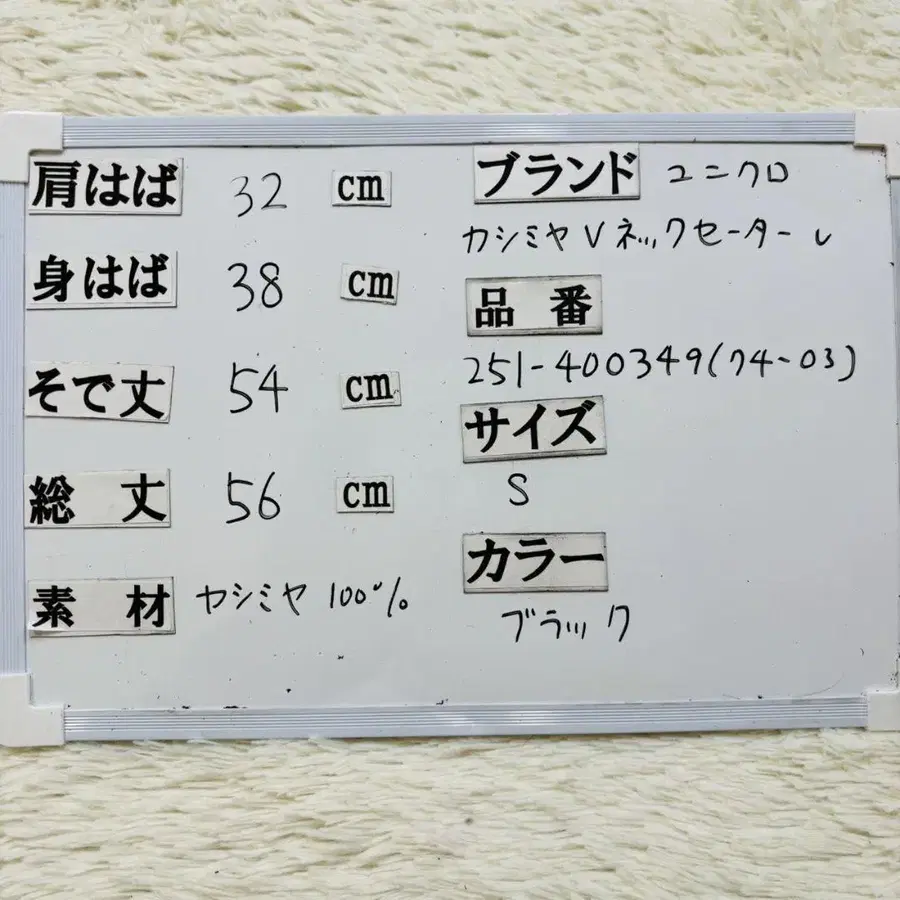 肩はば 32 cm
身はば 38 cm
そで丈 54 cm
総丈 56 cm
素材 ヤシミヤ 100%
ブランド ユニクロ
カシミヤVネックセーター
品番
251-400349(74-03)
サイズ
S
カラー
ブラック